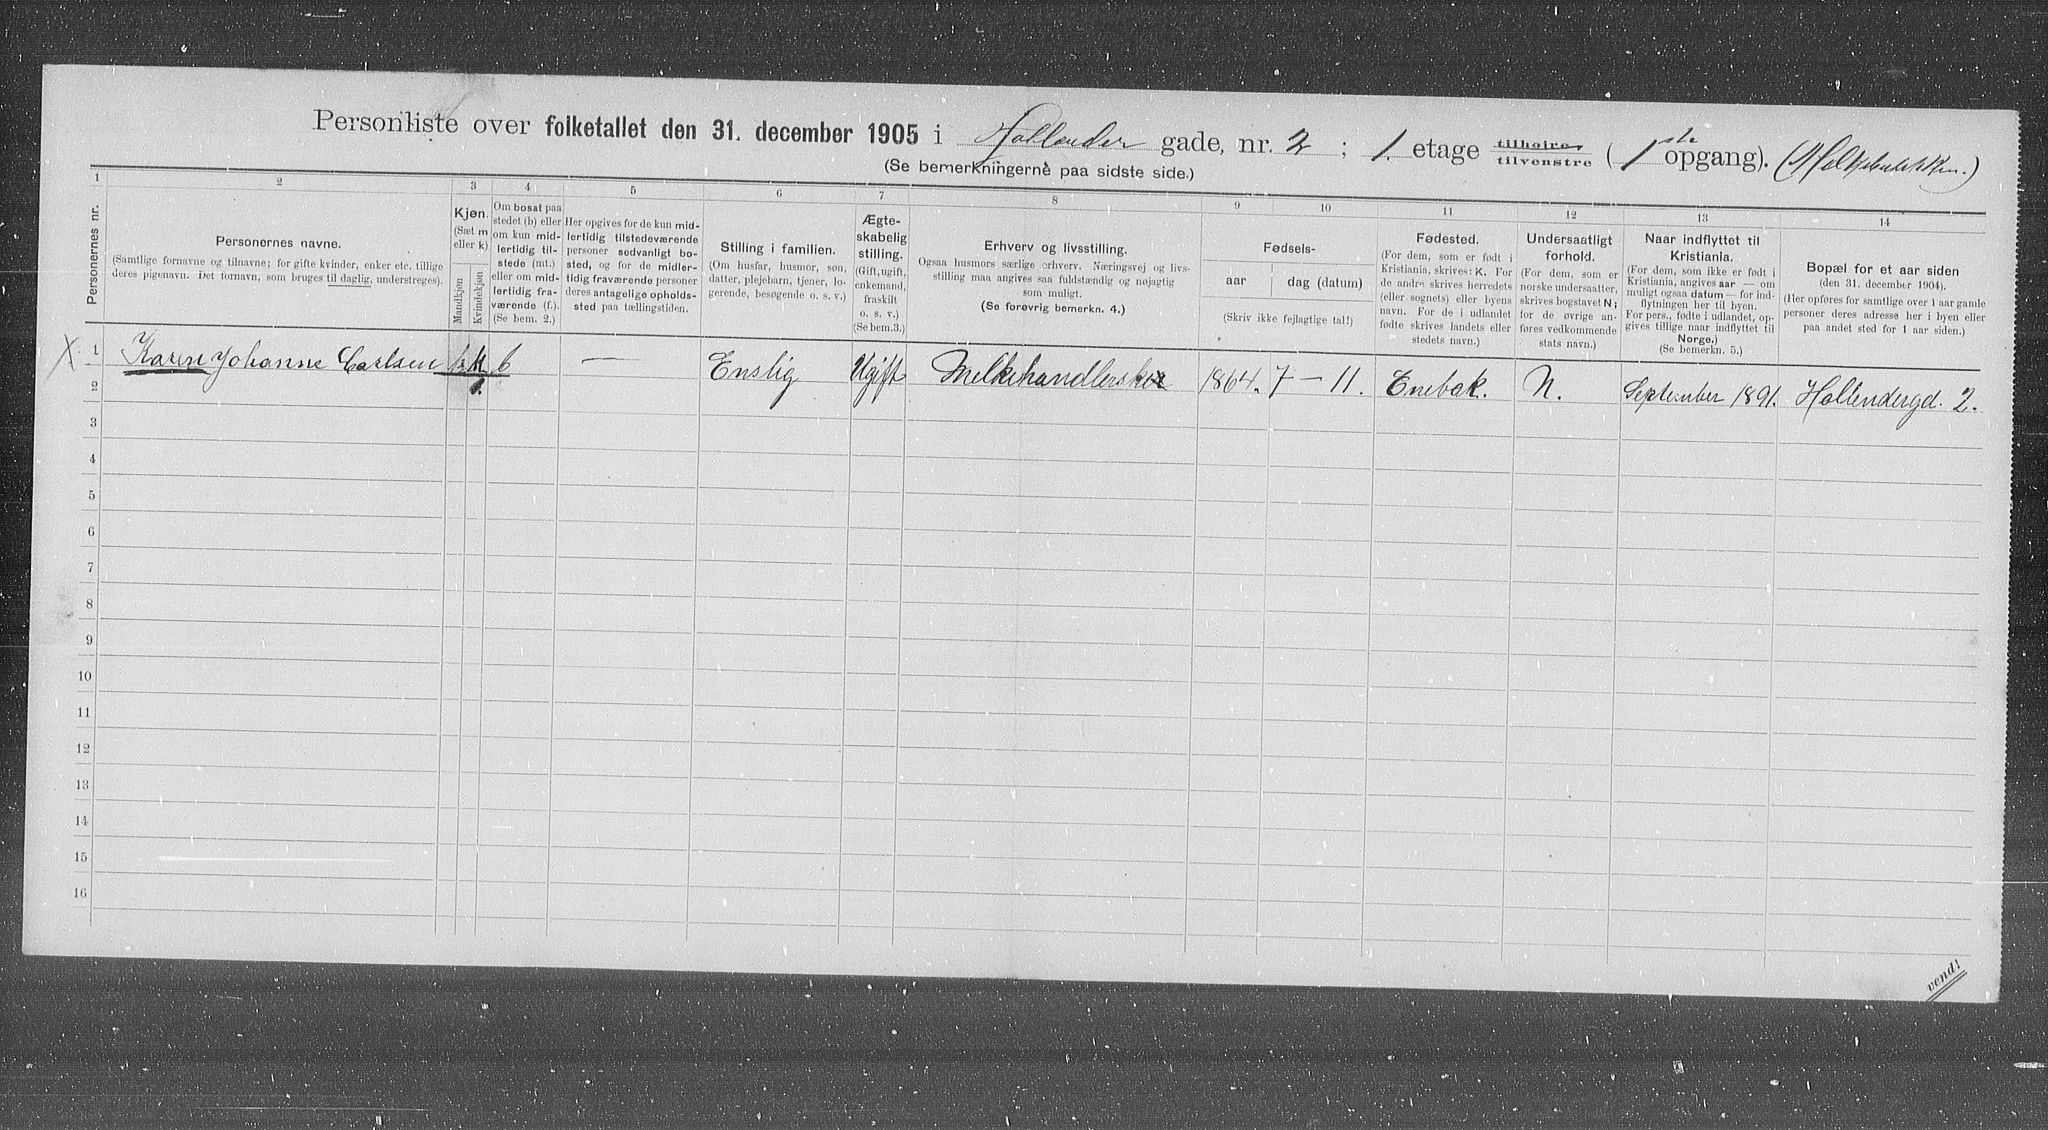 Personliste over folketallet den 31. december 1905 i Hollender gade, nr. 2 ; 1. etage tilhøire tilvenstre ( 1 ste opgang). (Melkebutikken.)
(Se bemerkningerne paa sidste side.)
1 2 3 4 5 6 7 8 9 10 11 12 13 14
Personernes nr.
Personernes navne.
(Samtlige fornavne og tilnavne; for gifte kvinder, enker etc. tillige
deres pigenavn. Det fornavn, som bruges til daglig, understreges).
Kjøn.
(Sæt m
eller k)
Mandkjøn
Kvindekjøn
Om bosat paa
stedet (b) eller
om kun mid-
lertidig til-
stede (mt.)
eller om mid-
lertidig fra-
værende (f.).
(Se bem. 2.)
Her opgives for de kun mid-
lertidig tilstedeværende
personer sedvanligt bo-
sted, og for de midler-
tidig fraværende personer
deres antagelige opholds-
sted paa tællingstiden.
Stilling i familien.
(Om husfar, husmor, søn,
datter, plejebarn, tjener, lo-
gerende, besøgende o. s. v.)
Ægte-
skabelig
stilling.
(Gift, ugift,
enkemand,
fraskilt
o. s. v.)
(Se bem.3.)
Erhverv og livsstilling.
Ogsaa husmors særlige erhverv. Næringsvej og livs-
stilling maa angives saa fuldstændig og nøjagtig
som muligt.
(Se forøvrig bemerkn. 4.)
Fødsels-
aar dag (datum)
(Skriv ikke fejlagtige tal!)
Fødested.
(For dem, som er født i
Kristiania, skrives: K. For
de andre skrives herredets
(eller sognets) eller byens
navn. For de i udlandet
fødte skrives landets eller
stedets navn.)
Undersaatligt
forhold.
(For dem, som er
norske undersaatter,
skrives bogstavet N;
for de øvrige an-
føres vedkommende
stats navn.)
Naar indflyttet til
Kristiania.
(For dem, som ikke er født i
Kristiania, angives aar — om
muligt ogsaa datum — for ind-
flytningen her til byen.
For pers., fødte i udlandet, op-
gives tillige naar indflyttet til
Norge.)
(Se bemerkn. 5.)
Bopæl for et aar siden
(den 31. december 1904).
(Her opføres for samtlige over 1 aar gamle
personer deres adresse her i byen eller
paa andet sted for 1 aar siden.)
X 1 Karen Johanne Carlsen k b — Enslig Ugift Melkehandlerske 1864. 7 – 11. Enebak. N. September 1891. Hollendergd. 2.
2 1.
3
4
5
6
7
8
9
10
11
12
13
14
15
16
vend!